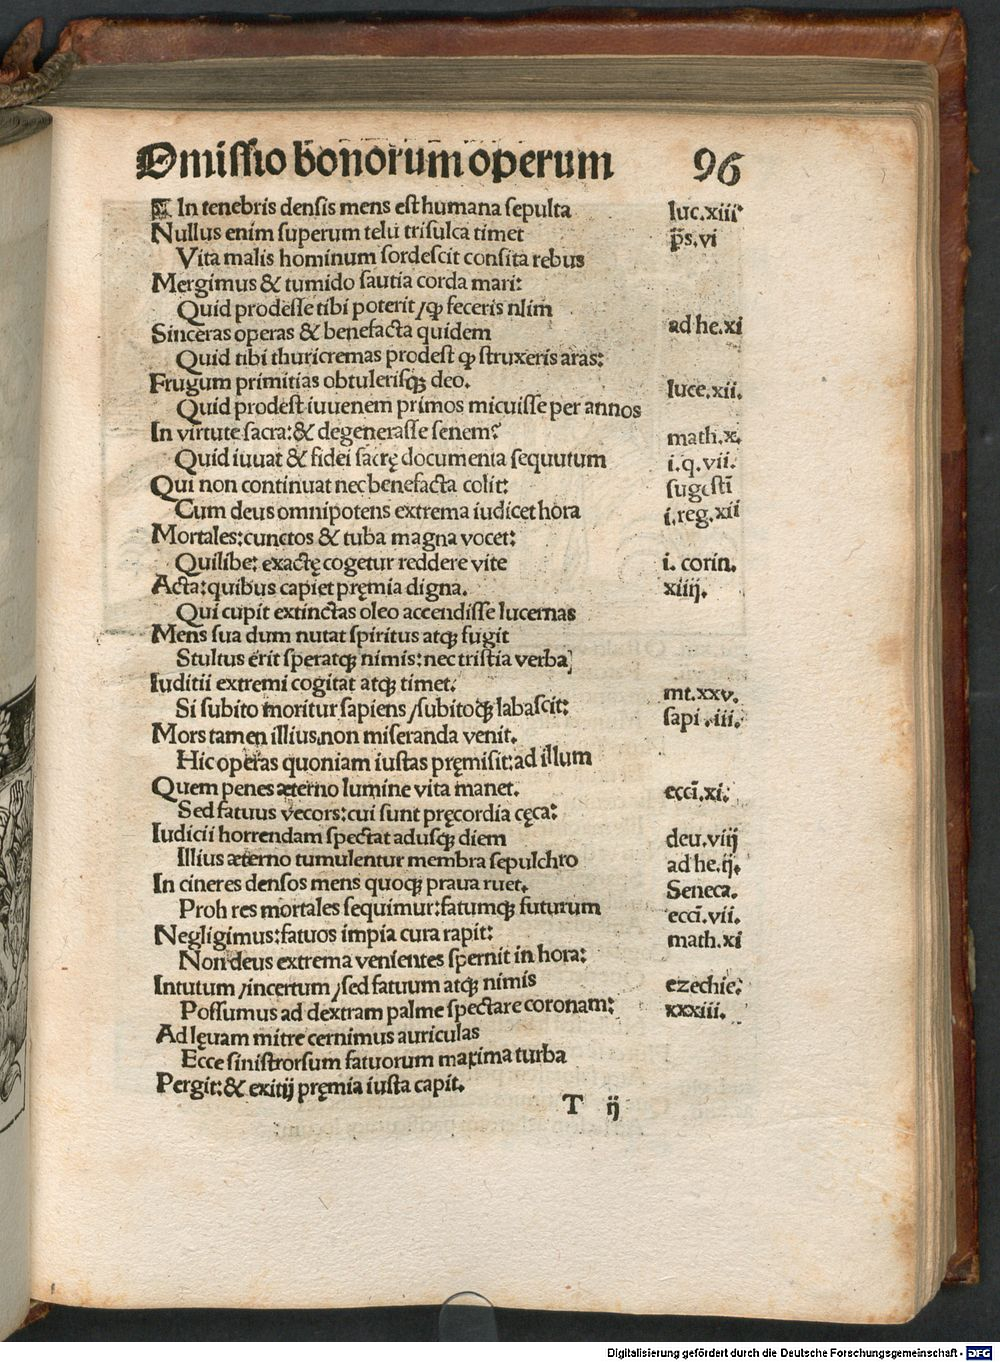 Omissio bonorum operum 96
¶ In tenebris densis mens est humana sepulta luc.xiii
Nullus enim superum telū trisulca timet p̄s.vi
Vita malis hominum sordescit consita rebus
Mergimus & tumido sautia corda mari:
Quid prodesse tibi poterit / ꝙ feceris nlim
Sinceras operas & benefacta quidem ad he.xi
Quid tibi thuricremas prodest ꝙ struxeris aras:
Frugum primitias obtulerisqꝫ deo. luce.xii.
Quid prodest iuuenem primos micuisse per annos
In virtute sacra: & degenerasse senem? math.x.
Quid iuuat & fidei sacrę documenta sequutum i.q.vii.
Qui non continuat nec benefacta colit: sugestī
Cum deus omnipotens extrema iudicet hora i.reg.xii
Mortales: cunctos & tuba magna vocet:
Quilibet exactę cogetur reddere vite i. corin.
Acta: quibus capiet pręmia digna. xiiij.
Qui cupit extinctas oleo accendisse lucernas
Mens sua dum nutat spiritus atqꝫ fugit
Stultus erit speratqꝫ nimis: nec tristia verba
Iuditii extremi cogitat atqꝫ timet. mt.xxv.
Si subito moritur sapiens / subitoqꝫ labascit: sapi.iii.
Mors tamen illius non miseranda venit.
Hic operas quoniam iustas pręmisit: ad illum
Quem penes æterno lumine vita manet. eccī.xi.
Sed fatuus vecors: cui sunt pręcordia cęca:
Iudicii horrendam spectat adusqꝫ diem deu.viij
Illius æterno tumulentur membra sepulchro ad he.ij.
In cineres densos mens quoqꝫ praua ruet. Seneca.
Proh res mortales sequimur: fatumqꝫ futurum eccī.vii.
Negligimus: fatuos impia cura rapit: math.xi
Non deus extrema venientes spernit in hora:
Intutum / incertum / sed fatuum atqꝫ nimis ezechie:
Possumus ad dextram palme spectare coronam: xxxiii.
Ad lęuam mitre cernimus auriculas
Ecce sinistrorsum fatuorum maxima turba
Pergit: & exitij pręmia iusta capit.
T ij
Digitalisierung gefördert durch die Deutsche Forschungsgemeinschaft - DFG